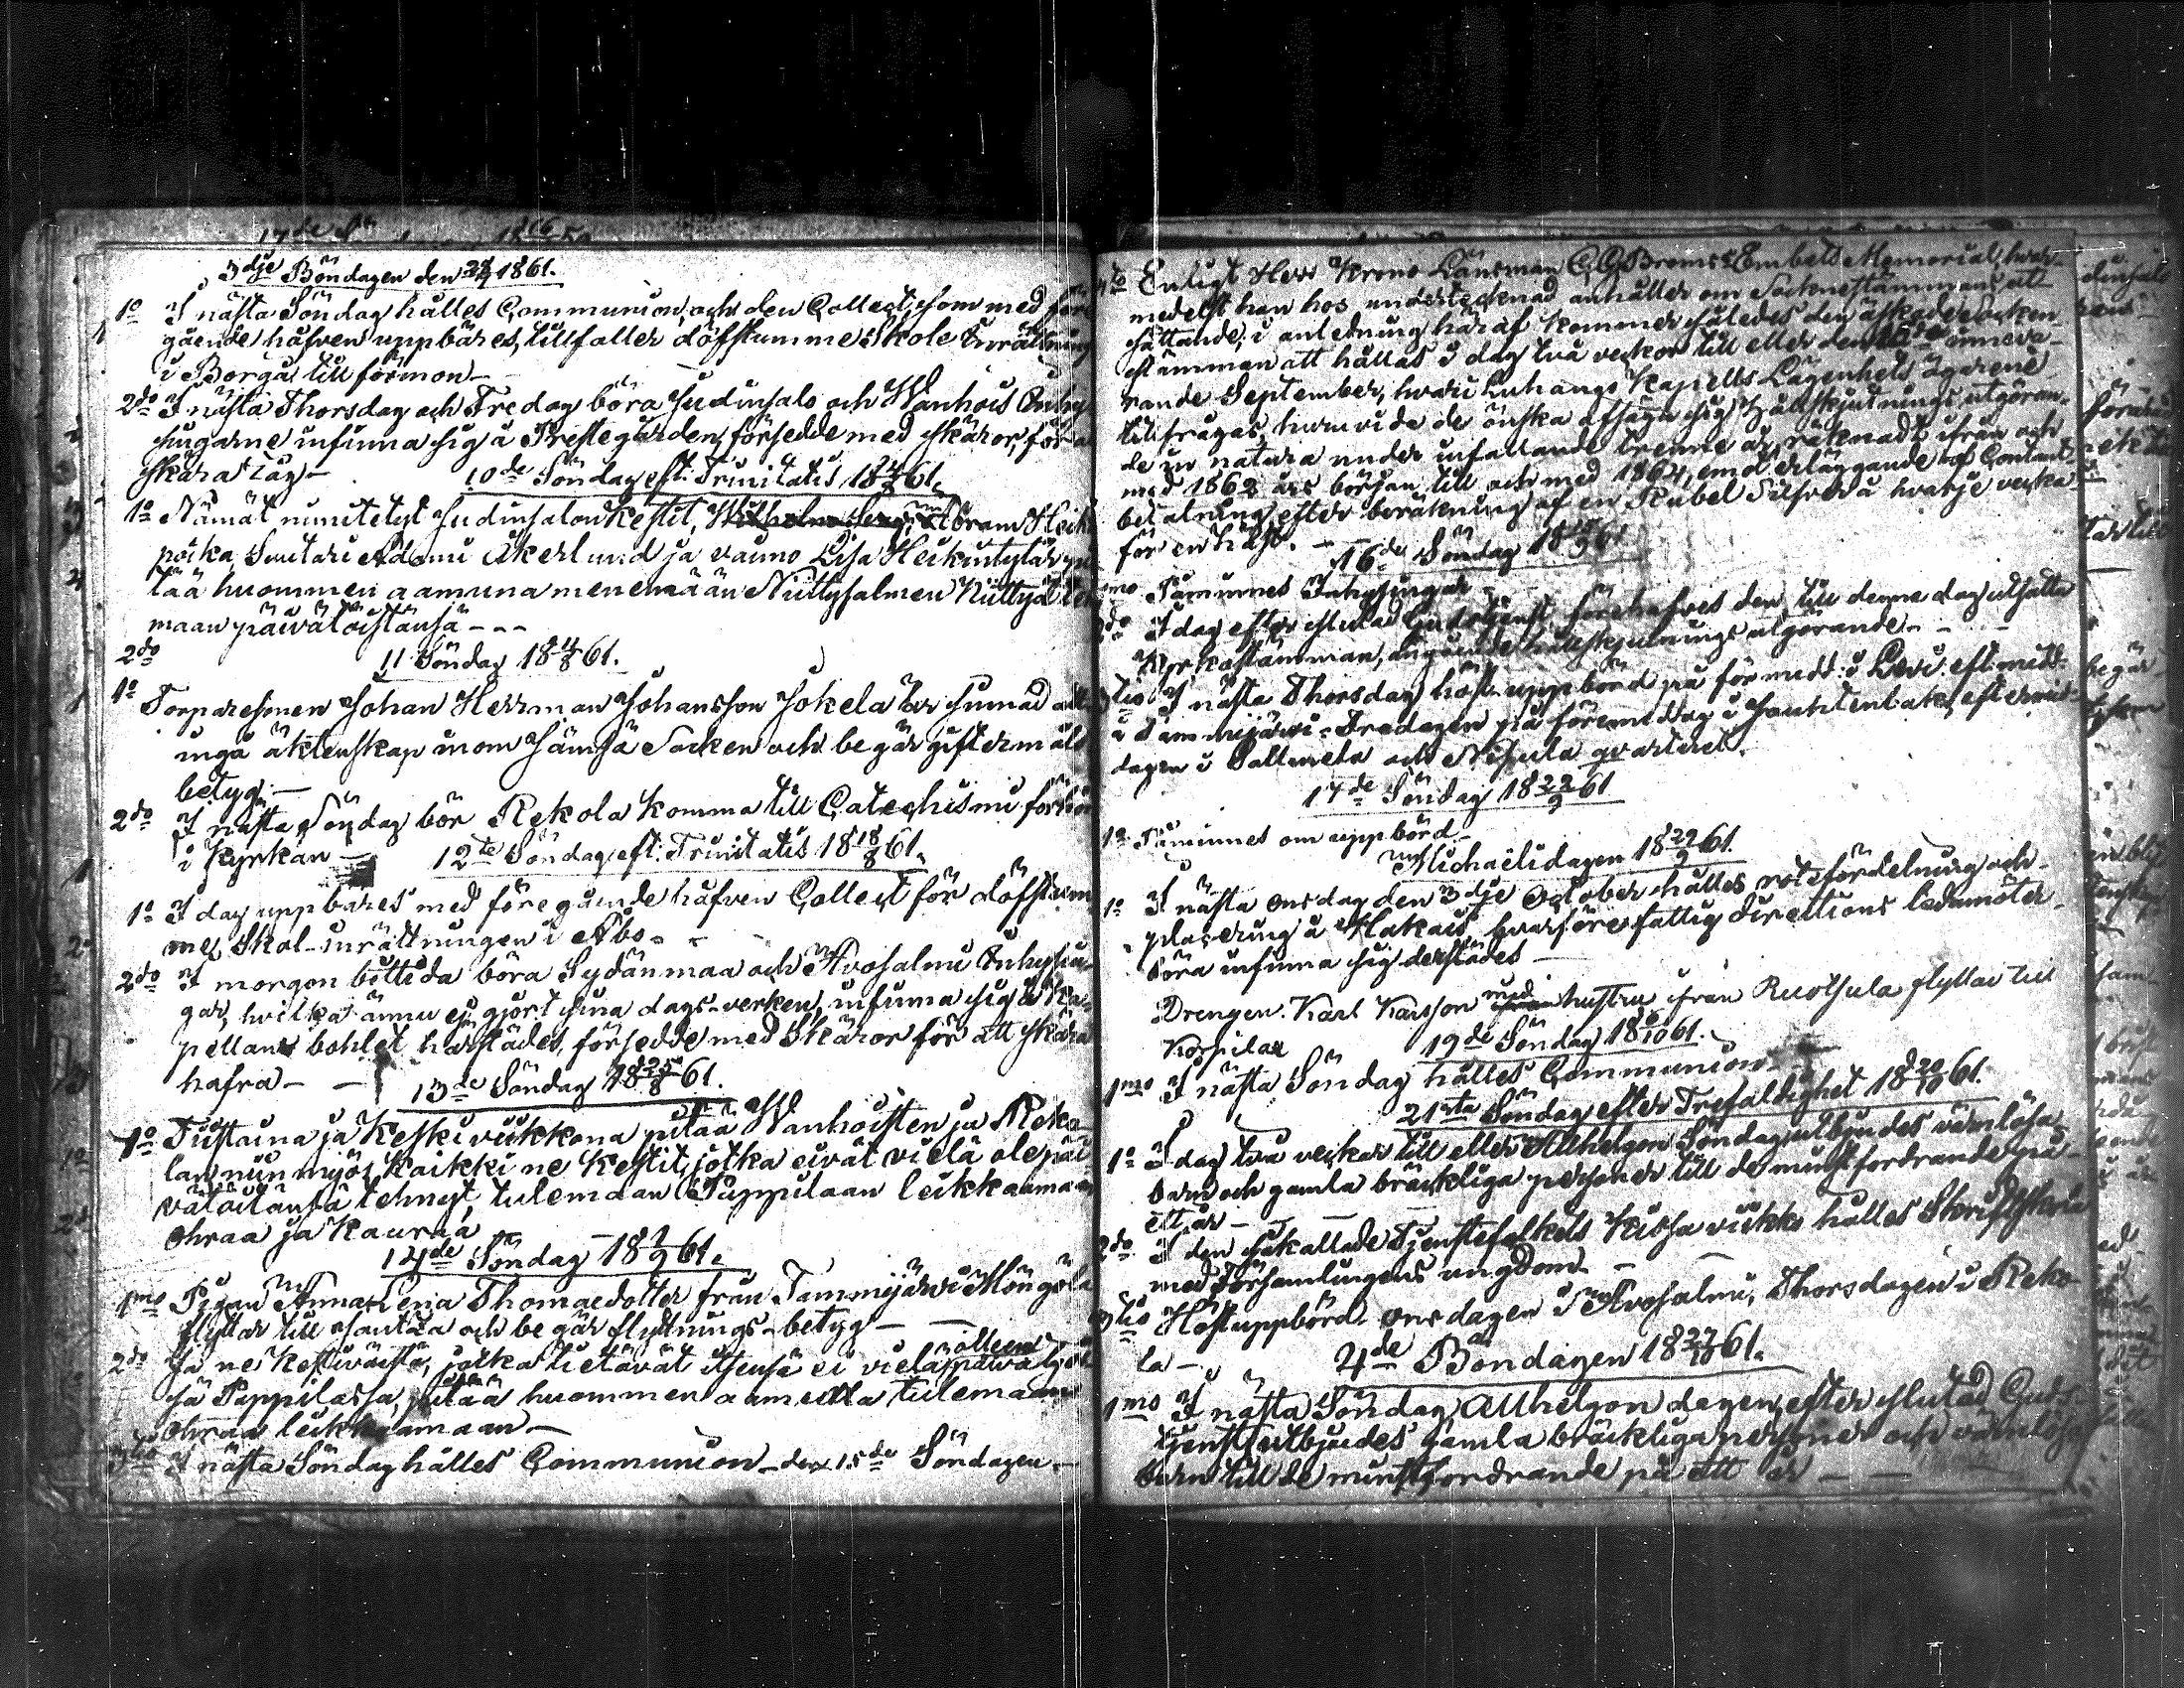 3dje Böndagen den 28/7 1861.
1o I nästa Söndag hålles Communion, och den Collect, som med före
gående håfven uppbäres, tillfaller döfstumme Skole Inrättning
i Borgå till förmon —
2do I nästa Thorsdag och Fredag böra Judinsalo och Wanhois Inhy
singarne infinna sig å Prestegården, försedde med skäror, för a
skära råg —
10de Söndag eft. Trinitatis 18 4/8 61.
1o Nämät nimitetyt Judinsalon Kestit, Abram Heik
poika, Sautari Adami Åkerlund ja vaimo Lisa Heikintytär pi
tää huomen aamuna menemään Niittysalmen Niittyä
maan päivätöistänsä - - -
2do
11 Söndag 18 11/8 61.
1o Torparesonen Johan Herrman Johansson Jokela är sinnad att
ingå äktenskap inom Jämsä Socken och begär giftermåls
betyg. —
2do I nästa Söndag bör Rekola komma till Catechismi förhör
i Kyrkan —
12te Söndag eft: Trinitatis 18 18/8 61.
1o I dag uppbäres med föregående håfven Collect för döfstum
me Skol-inrättningen i Åbo. -
2do I morgon bittida böra Sydänmaa och Avosalmi Inhysin
gar, hvilka ännu ej gjort sina dags-verken, infinna sig å Ka
pellans bohlet härstädes, försedde med Skäror för att skära
hafra — —
13de Söndag 18 25/8 61.
1o Tiistaina ja Keskiviikkona pitää Wanhoisten ja Reko
lan niin myös kaikki ne Kestit, jotka eivät vielä ole päi
vätöitänsä tehneet, tulemaan Pappilaan leikkaamaan
Ohraa ja Kauraa —
14de Söndag 18 1/9 61.
1mo Pigan Anna Lena Thomaedotter från Tammijärvi Möngölä
flyttar till Joutsa och begär flyttnings-betyg — —
olleen
2do Ja ne Kestiväistä, jotka tietävät itsensä ei vielä päivä työs
sä Pappilassa, pitää huomen aamulla tulemaan
Ohraa leikkaamaan —
3tio I nästa Söndag hålles Communion — den 15de Söndagen —
4to Enligt Herr Krono Länsman C. G. Broms's Embets Memorial, hvar
medelst han hos undertecknad anhåller om Sockenstämmans ut
sättande; i anledning häraf kommer således den äskade Socken
stämman att hållas i dag två veckor till eller den 15de inneva
rande September, hvari Luhango Kapells Lägenhets ägarene
tillfrågas, huruvida de önska afsäga sig hållskjutnings utgöran
de in natura under infallande trenne år, räknadt ifrån och
med 1862 års början till och med 1864, emot erläggande af Contant
betalning efter beräkning af en Rubel Silfver å hvarje vecka
för en häst. - -
16de Söndag 18 15/9 61
1mo Påminnes Inhysingar -
2do I dag efter slutad Gudstjenst förehafves den till denne dag utsatta
Kyrkostämman, angående hållskjutnings utgörande. - -
3tio I nästa Thorsdag höst-uppbörd på förmidd: i Levi. eft: midd:
å Tammijärvi. Fredagen på förmiddag i Jouhtenlaks, eftermid
dagen i Saltuneta och Nisula qvarteret.
17de Söndag 18 22/9 61
1o Påminnes om uppbörd —
Michaëlidagen 18 29/9 61.
1o I nästa Onsdag den 3dje October hålles rotefördelning och
placering å Hakais, hvarföre fattig direttions ledamöter
böra infinna sig derstädes —
Drengen Karl Karlson med hustru ifrån Ruotsula flyttar till
Korpilax
19de Söndag 18 6/10 61.
1mo I nästa Söndag hålles Communion —
21sta Söndag efter Trefaldighet 18 20/10 61.
1o I dag två veckor till eller Allhelgon Söndag utbjudes värnlösa
barn och gamla bräckliga personer till de minst fordrande på
ett år — — —
2do I den såkallade Tjenstefolkets Kiisa viikko hålles Skriftskola
med Församlingens ungdom. —
3tio Höstuppbörd Onsdagen i Avosalmi, Thorsdagen i Reko
la —
4de Böndagen 18 27/10 61.
1mo I nästa Söndag, Allhelgon dagen, efter slutad Guds
tjenst utbjudes gamla bräckliga personer och värnlösa
barn till de minst fordrande på ett år — —